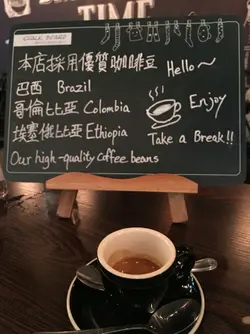 TIME
CHALK BOARD
本店採用優質咖啡豆
Hello~
巴西 Brazil
哥倫比亞 Colombia
Enjoy
埃塞俄比亞 Ethiopia
Take a Break!!
Our high-quality coffee beans